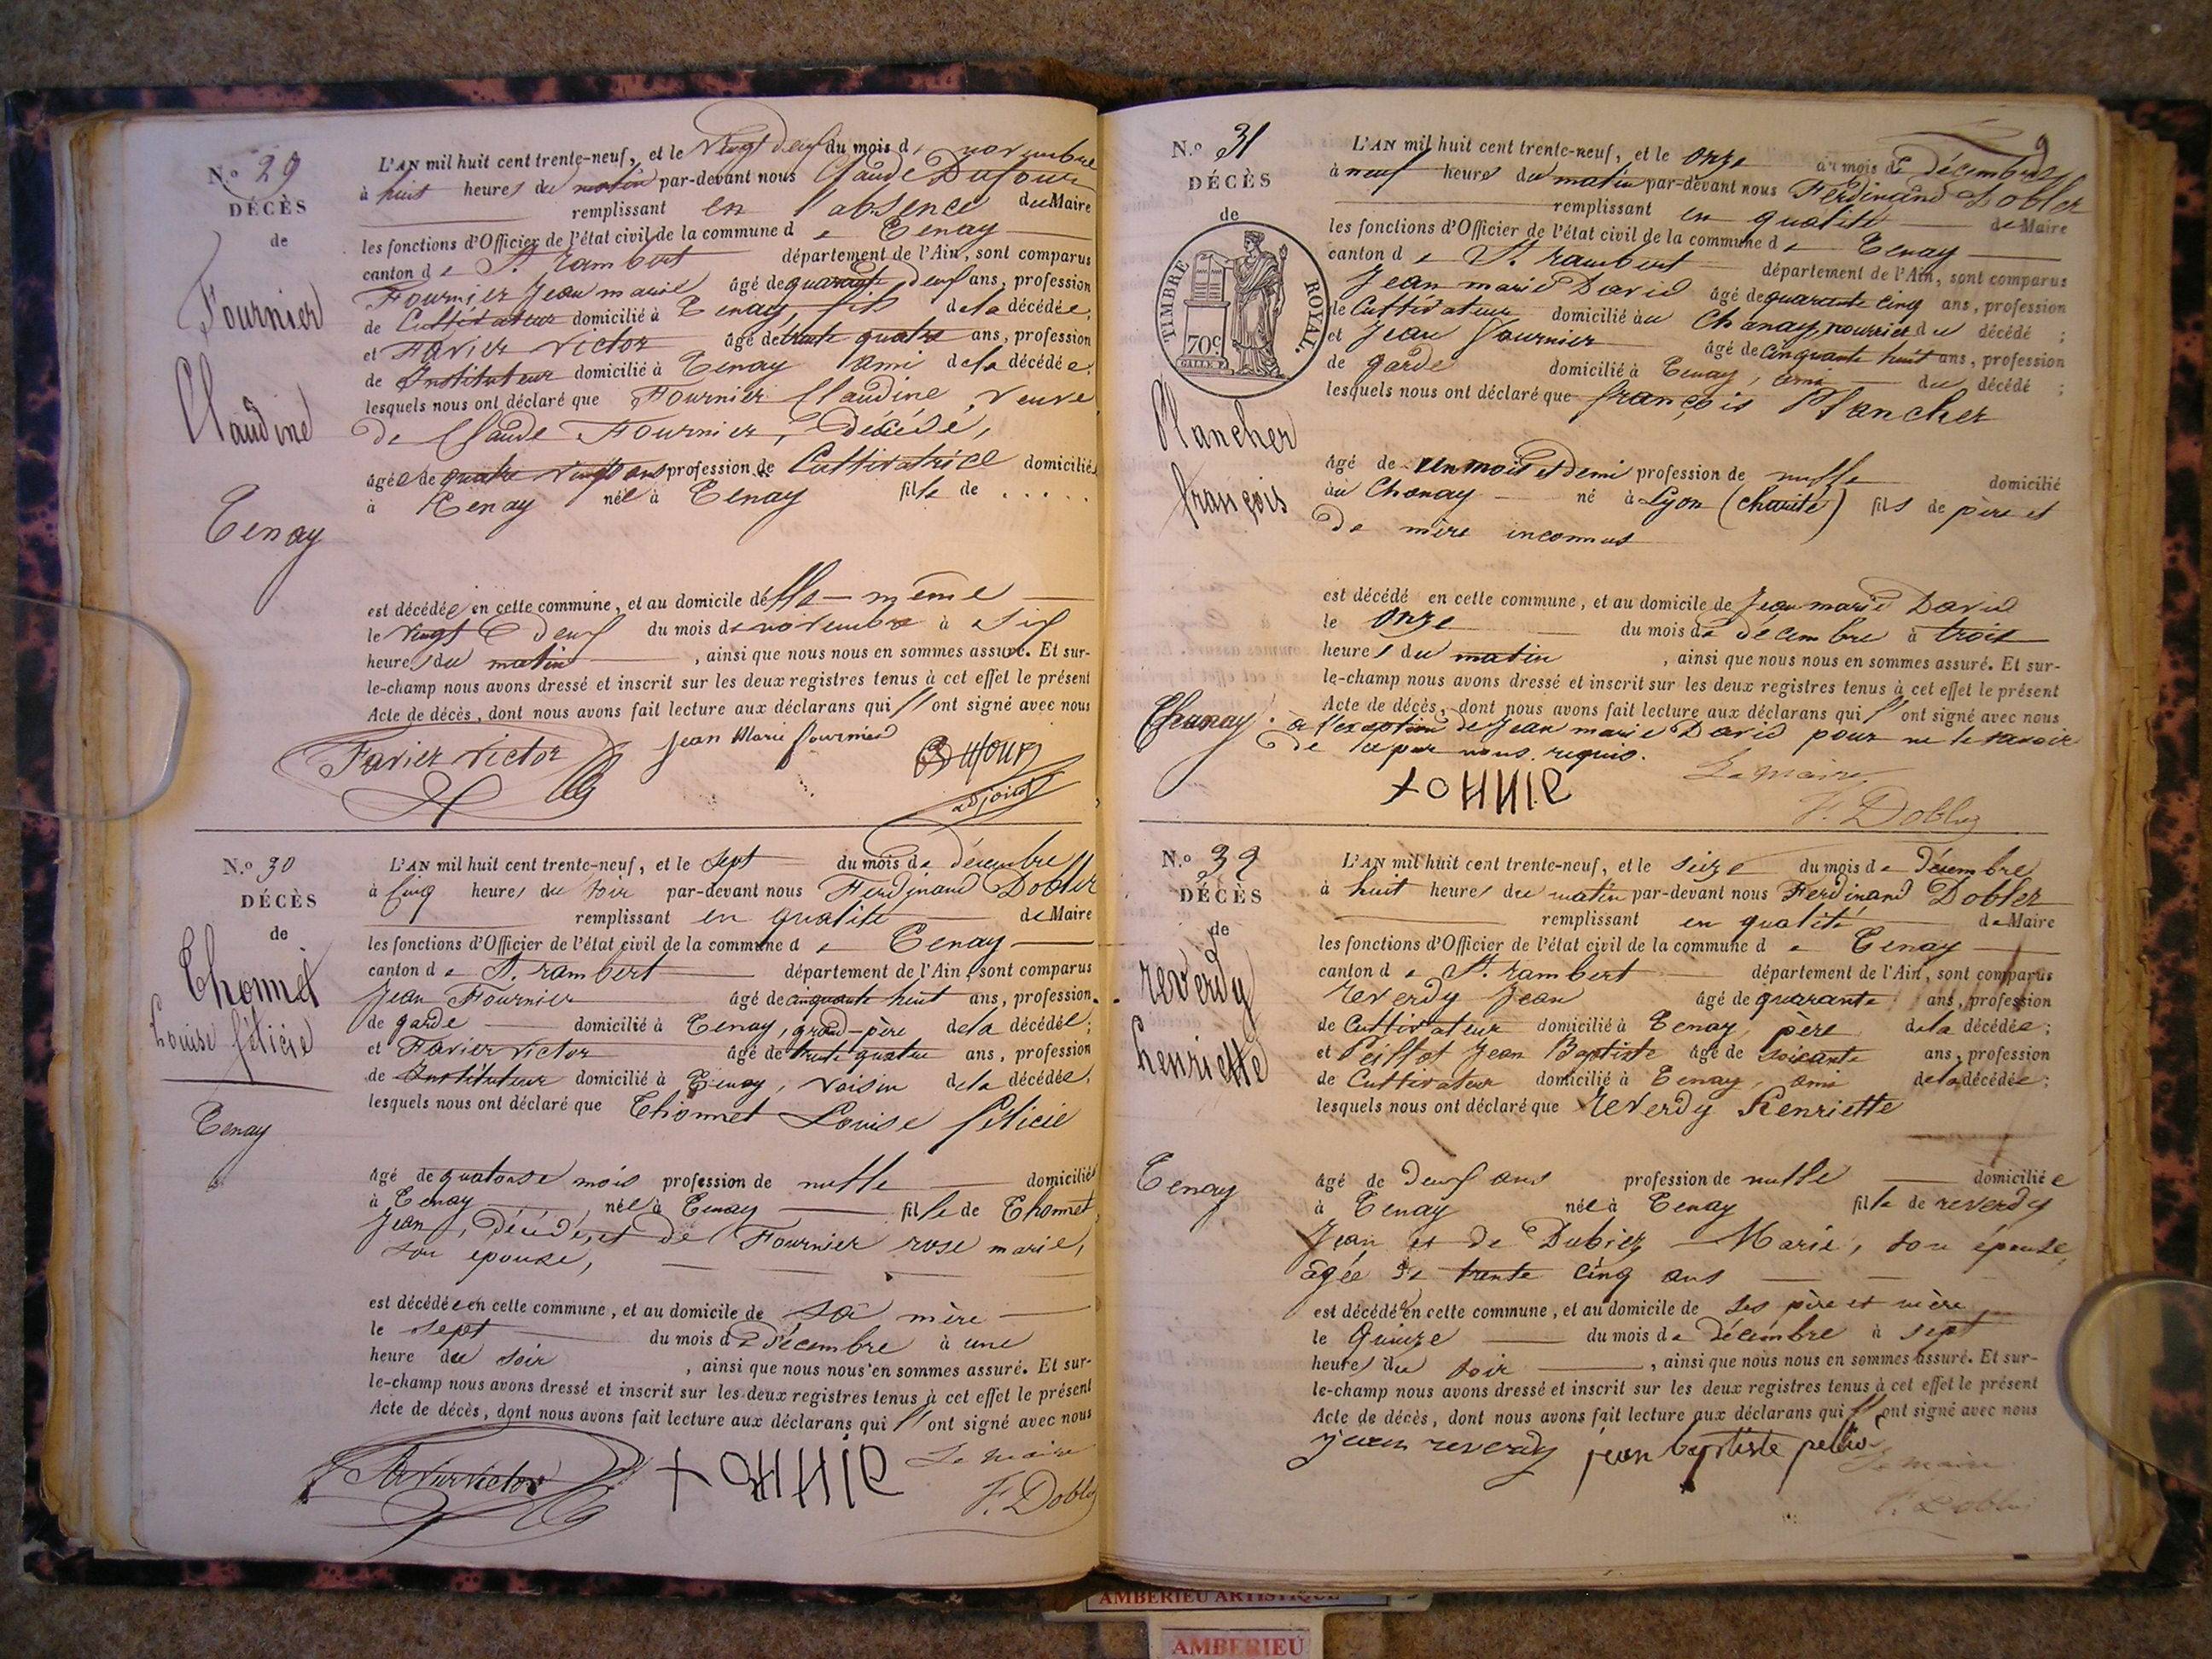 N.º 29
DÉCÈS
de
Fournier
Claudine
Tenay
L'AN mil huit cent trente-neuf, et le vingt deux du mois de novembre
à huit heures du matin par-devant nous Claude Dufour
remplissant en l'absence du Maire
les fonctions d'Officier de l'état civil de la commune de Tenay
canton de St. rambert département de l'Ain, sont comparus
Fournier Jean marie âgé de quarante deux ans, profession
de Cultivateur domicilié à Tenay, fils de la décédée,
et Favier victor âgé de trente quatre ans, profession
de Instituteur domicilié à Tenay ami de la décédée,
lesquels nous ont déclaré que Fournier Claudine, veuve
de Claude Fournier, décédé,
âgée de quatre vingts ans profession de Cultivatrice domiciliée
à Tenay née à Tenay fille de . . . . .
est décédée en cette commune, et au domicile d'elle-même
le vingt deux du mois de novembre à six
heures du matin, ainsi que nous nous en sommes assuré. Et sur-
le-champ nous avons dressé et inscrit sur les deux registres tenus à cet effet le présent
Acte de décès, dont nous avons fait lecture aux déclarans qui l'ont signé avec nous
Favier victor Jean Marie fournier Dufour
adjoint
N.º 30
DÉCÈS
de
Thonnet
Louise félicie
Tenay
L'AN mil huit cent trente-neuf, et le sept du mois de décembre
à cinq heures du soir par-devant nous Ferdinand Dobler
remplissant en qualité de Maire
les fonctions d'Officier de l'état civil de la commune de Tenay
canton de St. rambert département de l'Ain, sont comparus
Jean Fournier âgé de cinquante huit ans, profession
de garde domicilié à Tenay, grand-père de la décédée;
et Favier victor âgé de trente quatre ans, profession
de Instituteur domicilié à Tenay, voisin de la décédée,
lesquels nous ont déclaré que Thonnet Louise félicie
âgé de quatorse mois profession de nulle domiciliée
à Tenay, née à Tenay fille de Thonnet
Jean, décédé, et de Fournier rose marie,
son épouse,
est décédée en cette commune, et au domicile de sa mère
le sept du mois de décembre à une
heure du soir, ainsi que nous nous en sommes assuré. Et sur-
le-champ nous avons dressé et inscrit sur les deux registres tenus à cet effet le présent
Acte de décès, dont nous avons fait lecture aux déclarans qui l'ont signé avec nous
Favier victor Le maire
F. Dobler
9
N.º 31
DÉCÈS
de
TIMBRE ROYAL.
70c.
Plancher
françois
Chanay
L'AN mil huit cent trente-neuf, et le onze du mois de décembre
à neuf heures du matin par-devant nous Ferdinand Dobler
remplissant en qualité de Maire
les fonctions d'Officier de l'état civil de la commune de Tenay
canton de St. rambert département de l'Ain, sont comparus
Jean marie David âgé de quarante cinq ans, profession
de Cultivateur domicilié au Chanay, nourricier du décédé ;
et Jean fournier âgé de cinquante huit ans, profession
de garde domicilié à Tenay, ami du décédé ;
lesquels nous ont déclaré que françois Plancher
âgé de un mois et demi profession de nulle domicilié
au Chanay né à Lyon (charité) fils de père et
de mère inconnus
est décédé en cette commune, et au domicile de Jean marie David
le onze du mois de décembre à trois
heures du matin, ainsi que nous nous en sommes assuré. Et sur-
le-champ nous avons dressé et inscrit sur les deux registres tenus à cet effet le présent
Acte de décès, dont nous avons fait lecture aux déclarans qui l'ont signé avec nous
à l'exception de Jean marie David pour ne le savoir
de ce par nous requis.
Le maire
F. Dobler
N.º 32
DÉCÈS
de
reverdy
henriette
Tenay
L'AN mil huit cent trente-neuf, et le seize du mois de décembre
à huit heures du matin par-devant nous Ferdinand Dobler
remplissant en qualité de Maire
les fonctions d'Officier de l'état civil de la commune de Tenay
canton de St. rambert département de l'Ain, sont comparus
reverdy Jean âgé de quarante ans, profession
de Cultivateur domicilié à Tenay, père de la décédée;
et Peillot Jean Baptiste âgé de soixante ans, profession
de Cultivateur domicilié à Tenay, ami de la décédée;
lesquels nous ont déclaré que reverdy henriette
âgé de deux ans profession de nulle domiciliée
à Tenay née à Tenay fille de reverdy
Jean et de Dubiez Marie, son épouse,
âgée de trente cinq ans
est décédée en cette commune, et au domicile de ses père et mère
le quinze du mois de décembre à sept
heures du soir, ainsi que nous nous en sommes assuré. Et sur-
le-champ nous avons dressé et inscrit sur les deux registres tenus à cet effet le présent
Acte de décès, dont nous avons fait lecture aux déclarans qui l'ont signé avec nous
jean reverdy jean baptiste
Le maire
F. Dobler
AMBERIEU ARTISTIQUE
AMBERIEU